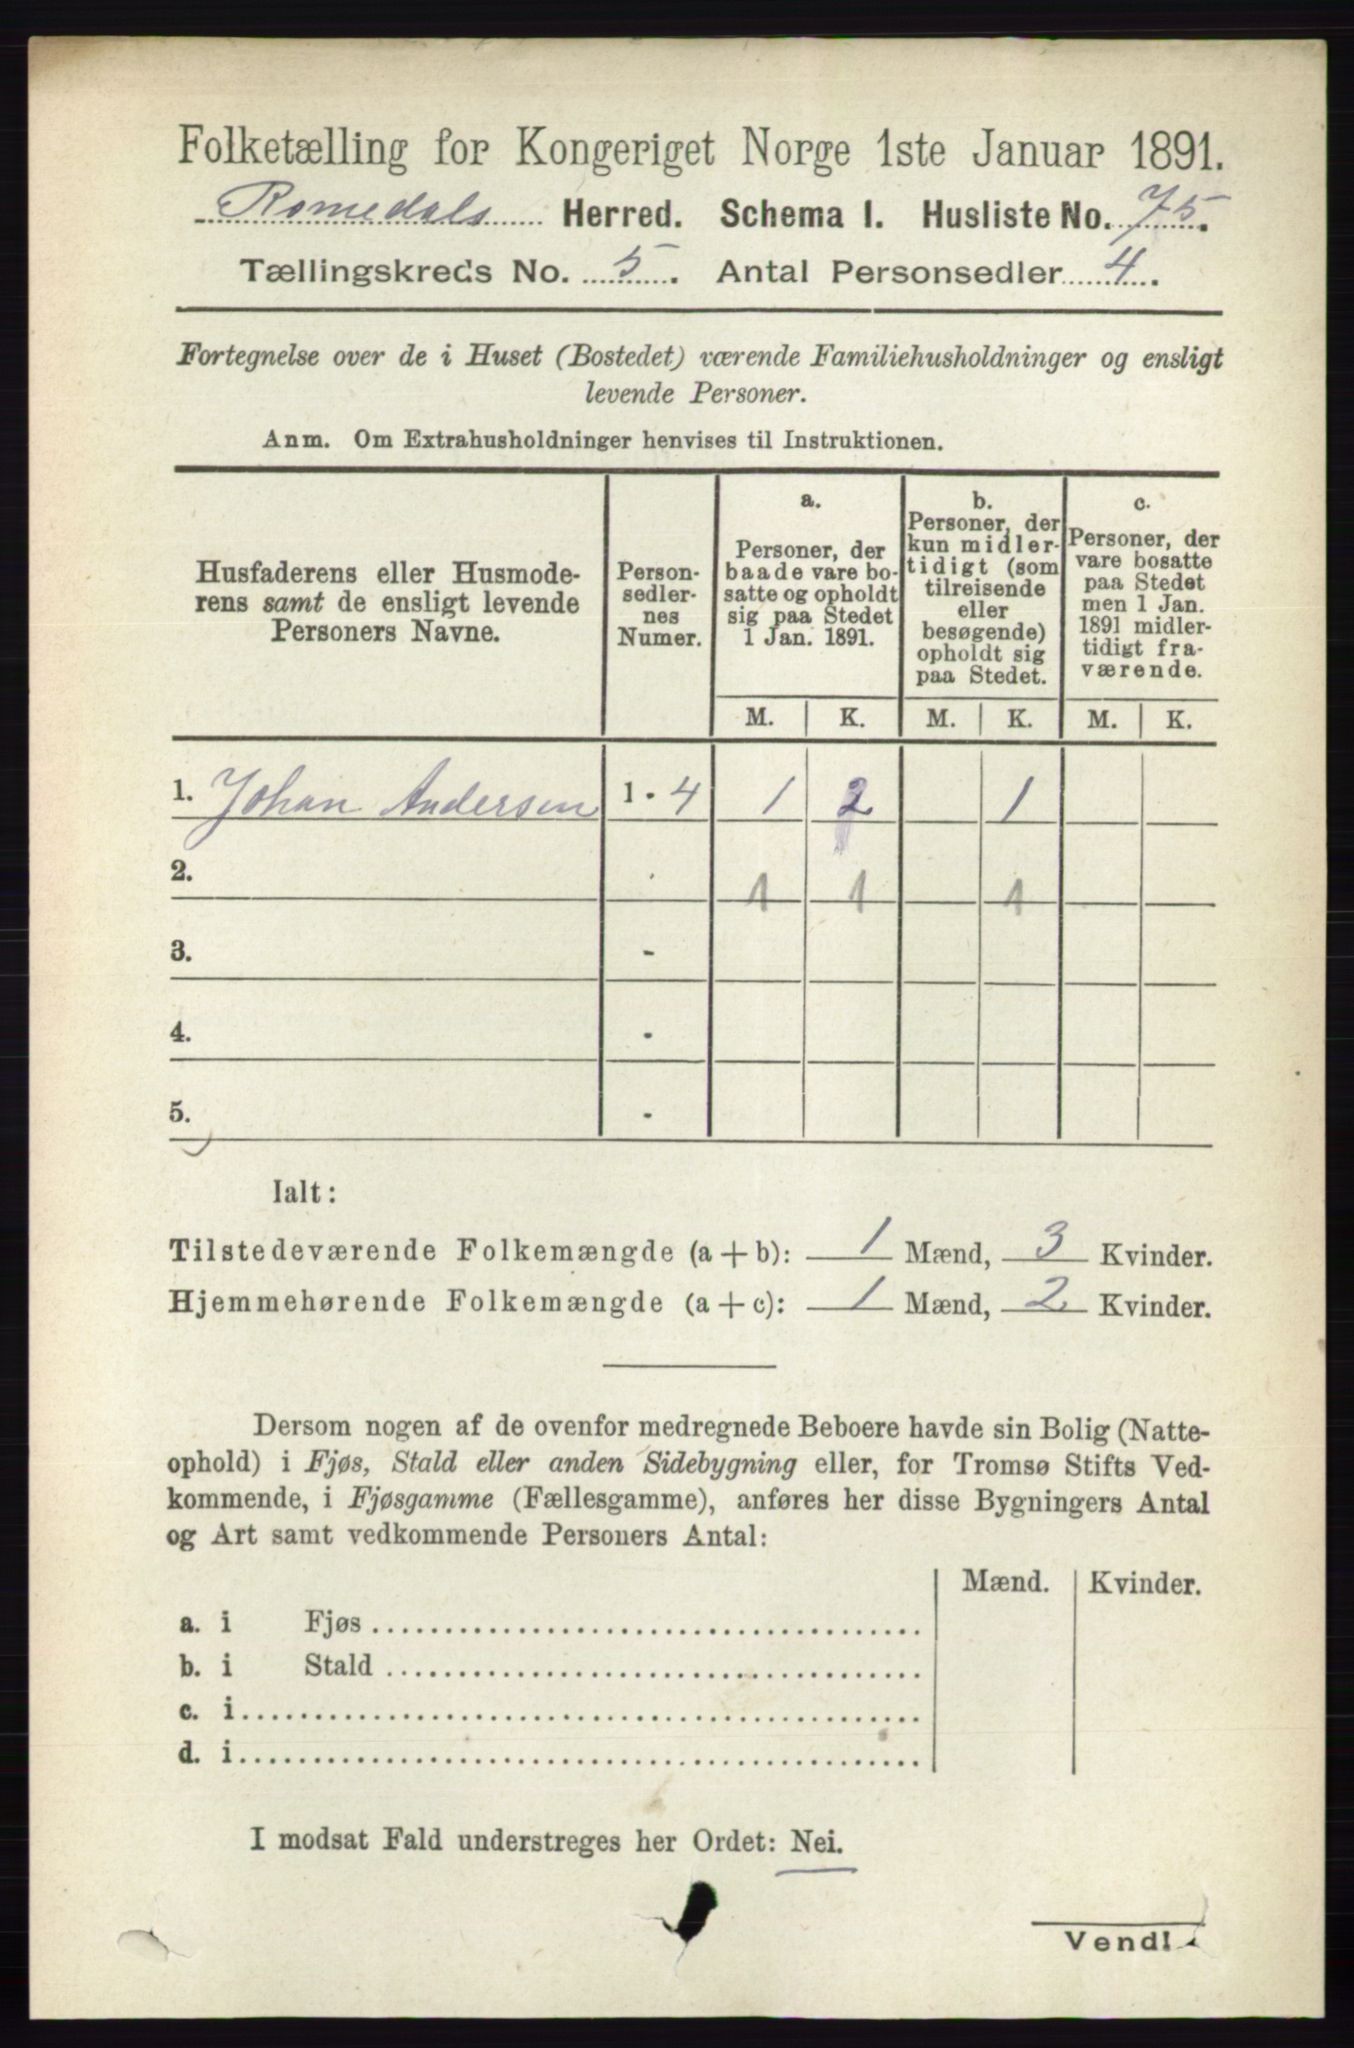 Folketælling for Kongeriget Norge 1ste Januar 1891.
Romedals Herred. Schema I. Husliste No. 75.
Tællingskreds No. 5. Antal Personsedler 4.
Fortegnelse over de i Huset (Bostedet) værende Familiehusholdninger og ensligt
levende Personer.
Anm. Om Extrahusholdninger henvises til Instruktionen.
Husfaderens eller Husmode-
rens samt de ensligt levende
Personers Navne.
Person-
sedler-
nes
Numer.
a.
Personer, der
baade vare bo-
satte og opholdt
sig paa Stedet
1 Jan. 1891.
b.
Personer, der
kun midler-
tidigt (som
tilreisende
eller
besøgende)
opholdt sig
paa Stedet.
c.
Personer, der
vare bosatte
paa Stedet
men 1 Jan.
1891 midler-
tidigt fra-
værende.
M. K. M. K. M. K.
1. Johan Andersen 1 - 4 1 2 1
2. 1 1 1
3. -
4. -
5. -
Ialt:
Tilstedeværende Folkemængde (a + b): 1 Mænd, 3 Kvinder.
Hjemmehørende Folkemængde (a + c): 1 Mænd, 2 Kvinder.
Dersom nogen af de ovenfor medregnede Beboere havde sin Bolig (Natte-
ophold) i Fjøs, Stald eller anden Sidebygning eller, for Tromsø Stifts Ved-
kommende, i Fjøsgamme (Fællesgamme), anføres her disse Bygningers Antal
og Art samt vedkommende Personers Antal:
Mænd. Kvinder.
a. i Fjøs
b. i Stald
c. i
d. i
I modsat Fald understreges her Ordet: Nei.
Vend!